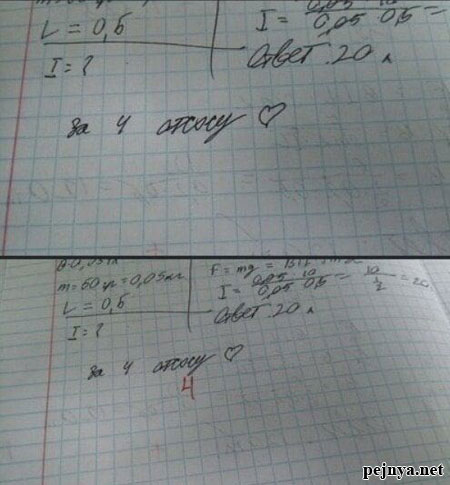 L = 0,5
I = ?
I = 0,05 10 / 0,05 0,5 =
Ответ. 20
за 4 отсосу ♡
m=50 гр=0,05кг
L = 0,5
I = ?
F = mg =
I = 0,05 10 / 0,05 0,5 = 10 / 1/2 = 20
Ответ. 20
за 4 отсосу ♡
4
pejnya.net